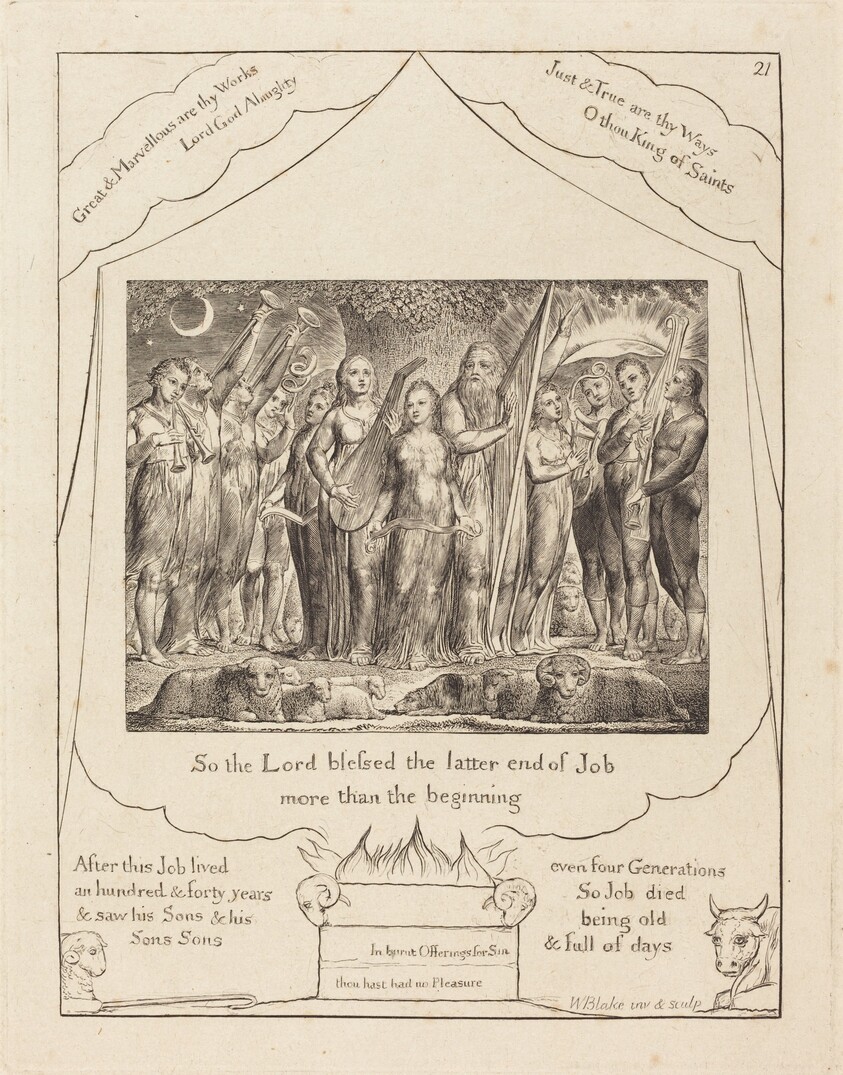 21
Great & Marvellous are thy Works
Lord God Almighty
Just & True are thy Ways
O thou King of Saints
So the Lord blefsed the latter end of Job
more than the beginning
After this Job lived
an hundred & forty years
& saw his Sons & his
Sons Sons
even four Generations
So Job died
being old
& full of days
In burnt Offerings for Sin
thou hast had no Pleasure
WBlake inv & sculp